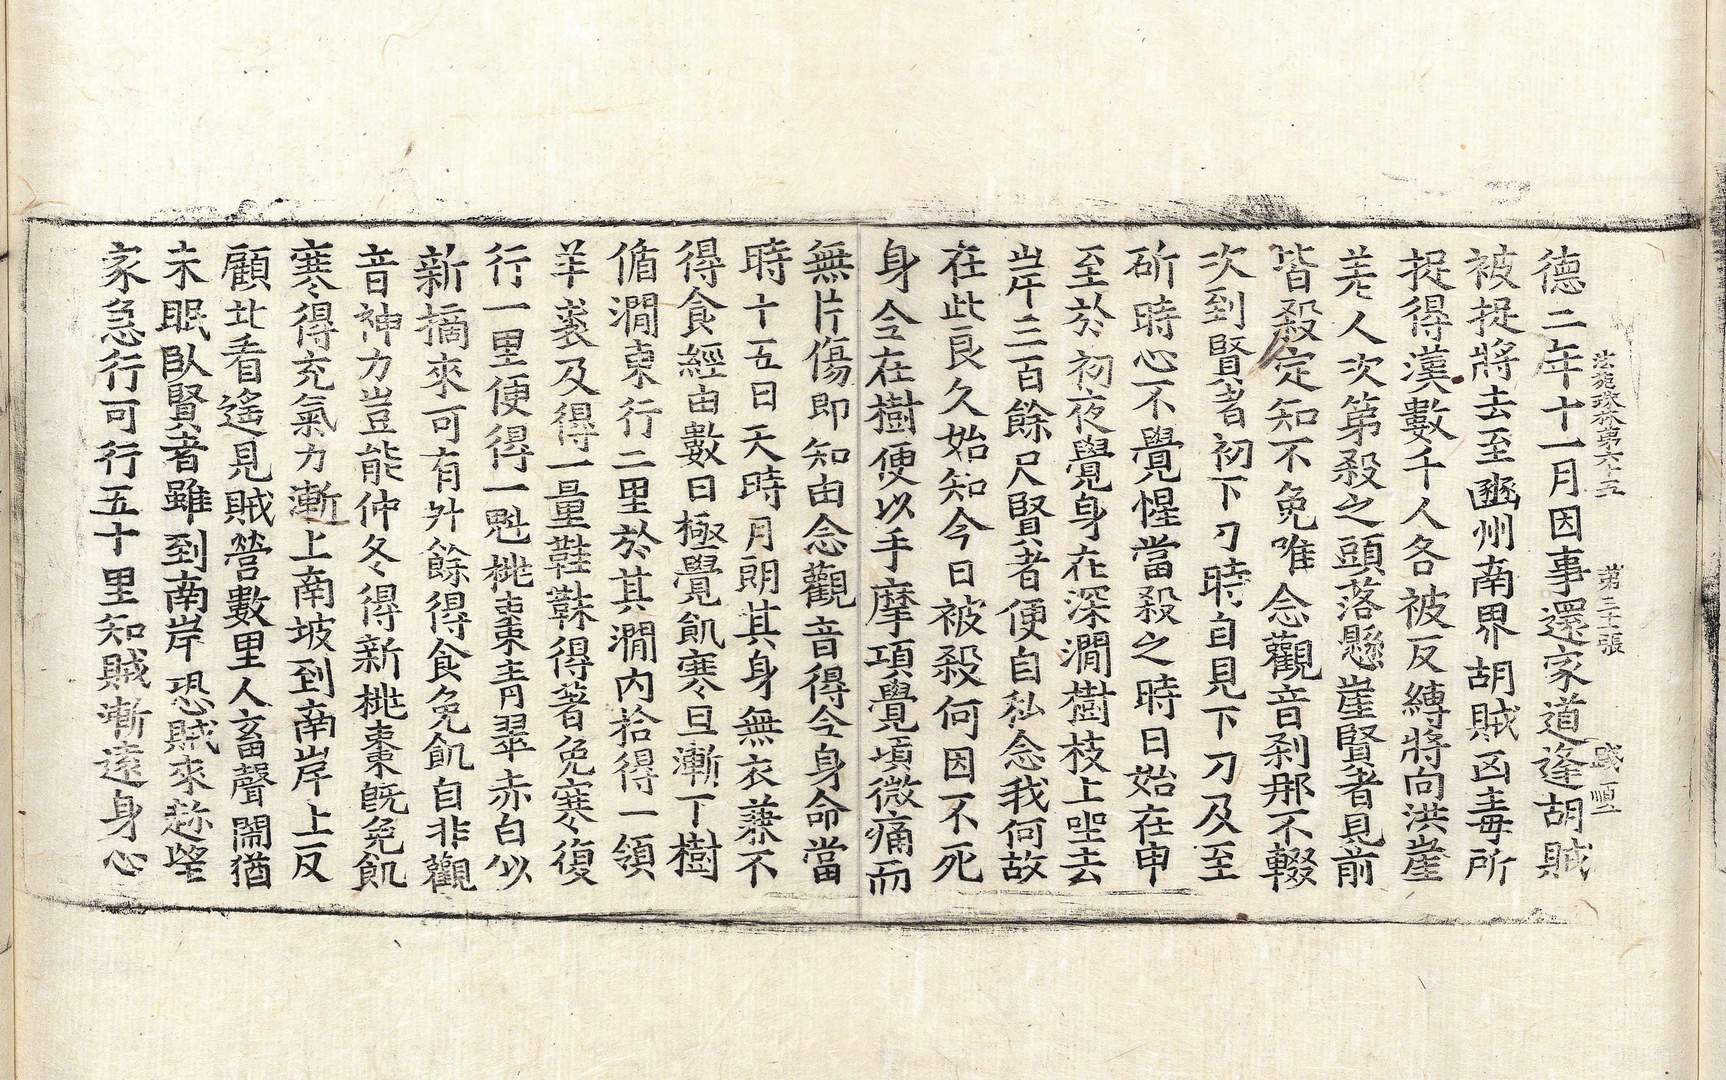 法苑珠林第六十五　第三十張　踐　順一
德二年十一月因事還家道逢胡賊
被捉將去至豳州南界胡賊凶毒所
捉得漢數千人各被反縛將向洪崖
差人次第殺之頭落懸崖賢者見前
皆殺定知不免唯念觀音剎那不輟
次到賢者初下刀時自見下刀及至
斫時心不覺惺當殺之時日始在申
至於初夜覺身在深澗樹枝上坐去
岸三百餘尺賢者便自私念我何故
在此良久始知今日被殺何因不死
身今在樹便以手摩項覺項微痛而
無片傷即知由念觀音得全身命當
時十五日天時月朗其身無衣兼不
得食經由數日極覺飢寒旦漸下樹
循澗東行二里於其澗內拾得一領
羊裘及得一量鞋韈得著免寒復
行一里便得一尅桃棗青翠赤白似
新摘來可有升餘得食免飢自非觀
音神力豈能仲冬得新桃棗旣免飢
寒得充氣力漸上南坡到南岸上反
顧北看遙見賊營數里人畜聲鬧猶
未眠臥賢者雖到南岸恐賊來趂望
家急行可行五十里知賊漸遠身心